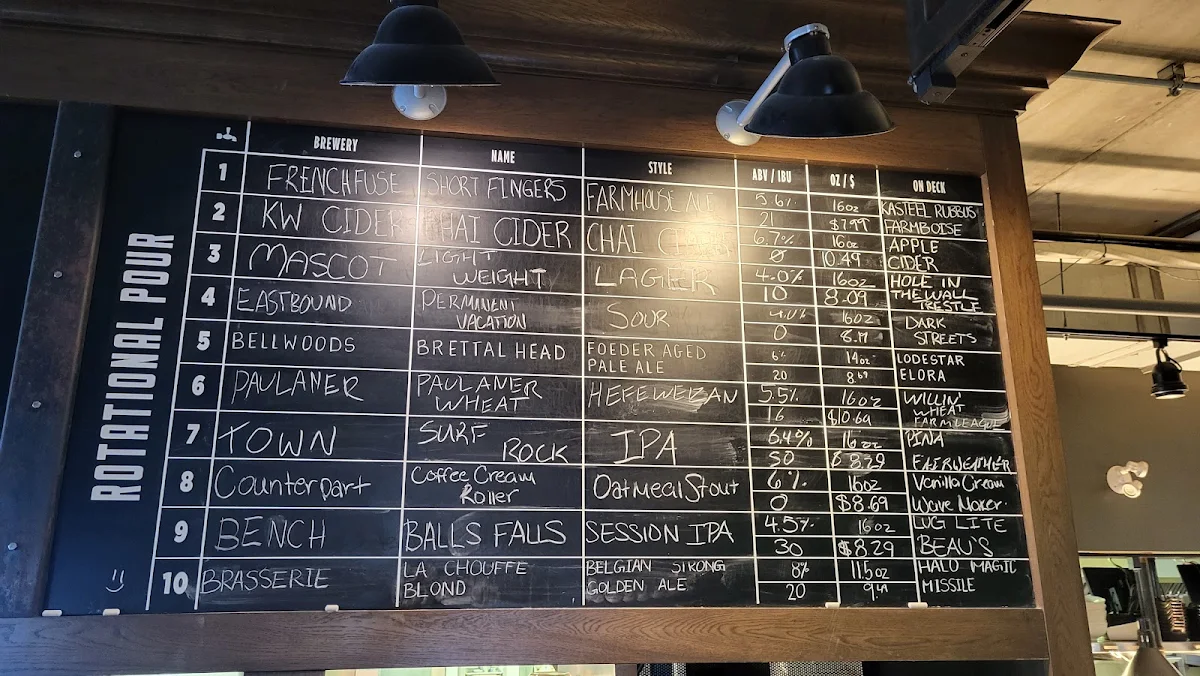 ROTATIONAL POUR
BREWERY NAME STYLE ABV / IBU OZ / $ ON DECK
1 FRENCHFUSE SHORT FINGERS FARMHOUSE ALE 5.6% 16oz KASTEEL RUBBUS
21 $7.99 FARMBOISE
2 KW CIDER CHAI CIDER CHAI CIDER 6.7% 16oz APPLE
0 10.49 CIDER
3 MASCOT LIGHT LAGER 4.0% 16oz HOLE IN
WEIGHT 10 8.09 THE WALL
TRESTLE
4 EASTBOUND PERMANENT SOUR 4.0% 16oz DARK
VACATION 0 STREETS
5 BELLWOODS BRETTAL HEAD FOEDER AGED 6% 14oz LODESTAR
PALE ALE 20 8.69 ELORA
6 PAULANER PAULANER HEFEWEIZAN 5.5% 16oz WILLIN'
WHEAT 16 $10.69 WHEAT
FARMLEAGUE
7 TOWN SURF IPA 6.4% 16oz PINA
ROCK 50 $8.29 FAIRWEATHER
8 Counterpart Coffee Cream Oatmeal Stout 6% 16oz Vanilla Cream
Roller 0 $8.69 Wave Maker
9 BENCH BALLS FALLS SESSION IPA 4.5% 16oz LUG LITE
30 $8.29 BEAU'S
10 BRASSERIE LA CHOUFFE BELGIAN STRONG 8% 11.5oz HALO MAGIC
BLOND GOLDEN ALE 20 MISSILE